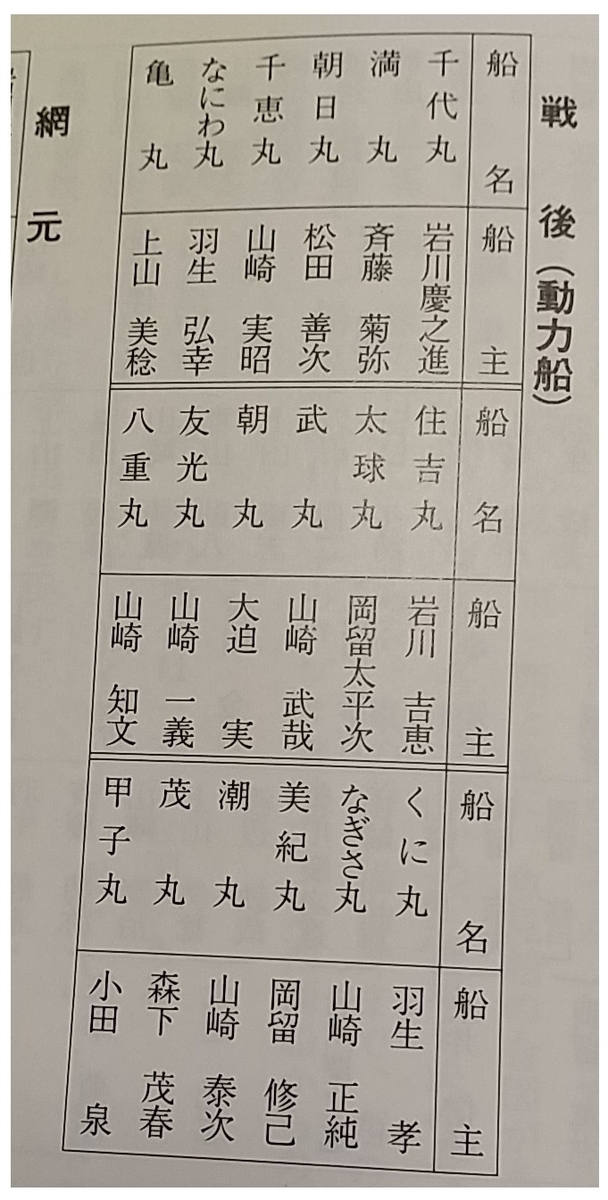 戦後(動力船)
船名
千代丸
満丸
朝日丸
千恵丸
なにわ丸
亀丸
船主
岩川慶之進
斉藤菊弥
松田善次
山崎実昭
羽生弘幸
上山美稔
船名
住吉丸
太球丸
武丸
朝丸
友光丸
八重丸
船主
岩川吉恵
岡留太平次
山崎武哉
大迫実
山崎一義
山崎知文
船名
くに丸
なぎさ丸
美紀丸
潮丸
茂丸
甲子丸
船主
羽生孝
山崎正純
岡留修己
山崎泰次
森下茂春
小田泉
網元